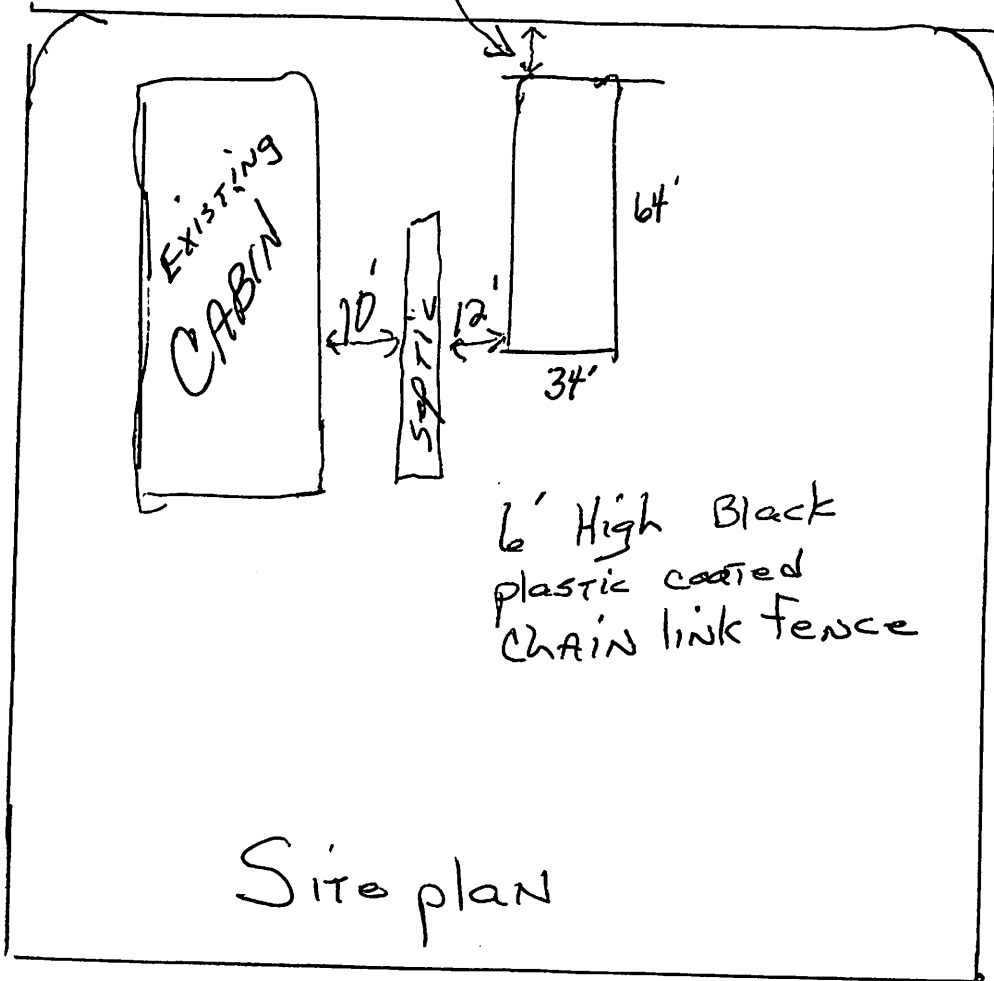 EXISTING
CABIN
10'
Septic
12'
64'
34'
6' High Black
plastic coated
CHAIN link fence
Site plan